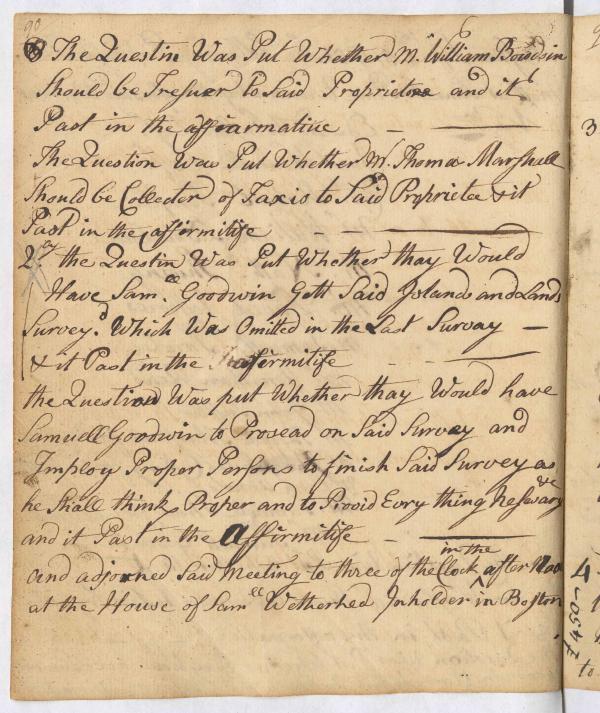 90
The Questin Was Put Whether Mr. William Bowdoin
Should be Tresuer to Said Proprietors and it
Past in the affiarmatiue
The Question Was Put Whether Mr. Thomas Marshall
Should be Collector of Taxis to Said Proprietee & it
Past in the affirmitife
2ly the Questin Was Put Whether thay Would
Have Samll. Goodwin Gett Said Jslands and Lands
Surveyd. Which Was Omitted in the Last Survay
& it Past in the affirmitife
the Question Was put Whether thay Would have
Samuell Goodwin to Prosead on Said Survey and
Imploy Proper Persons to finish Said Survey as
he Shall think Proper and to Provid Evry thing
and it Past in the affirmitife
in the
and adjorned Said Meeting to three of the Clock after Noon
at the House of Samll Wetherhed Jnholder in Boston
3